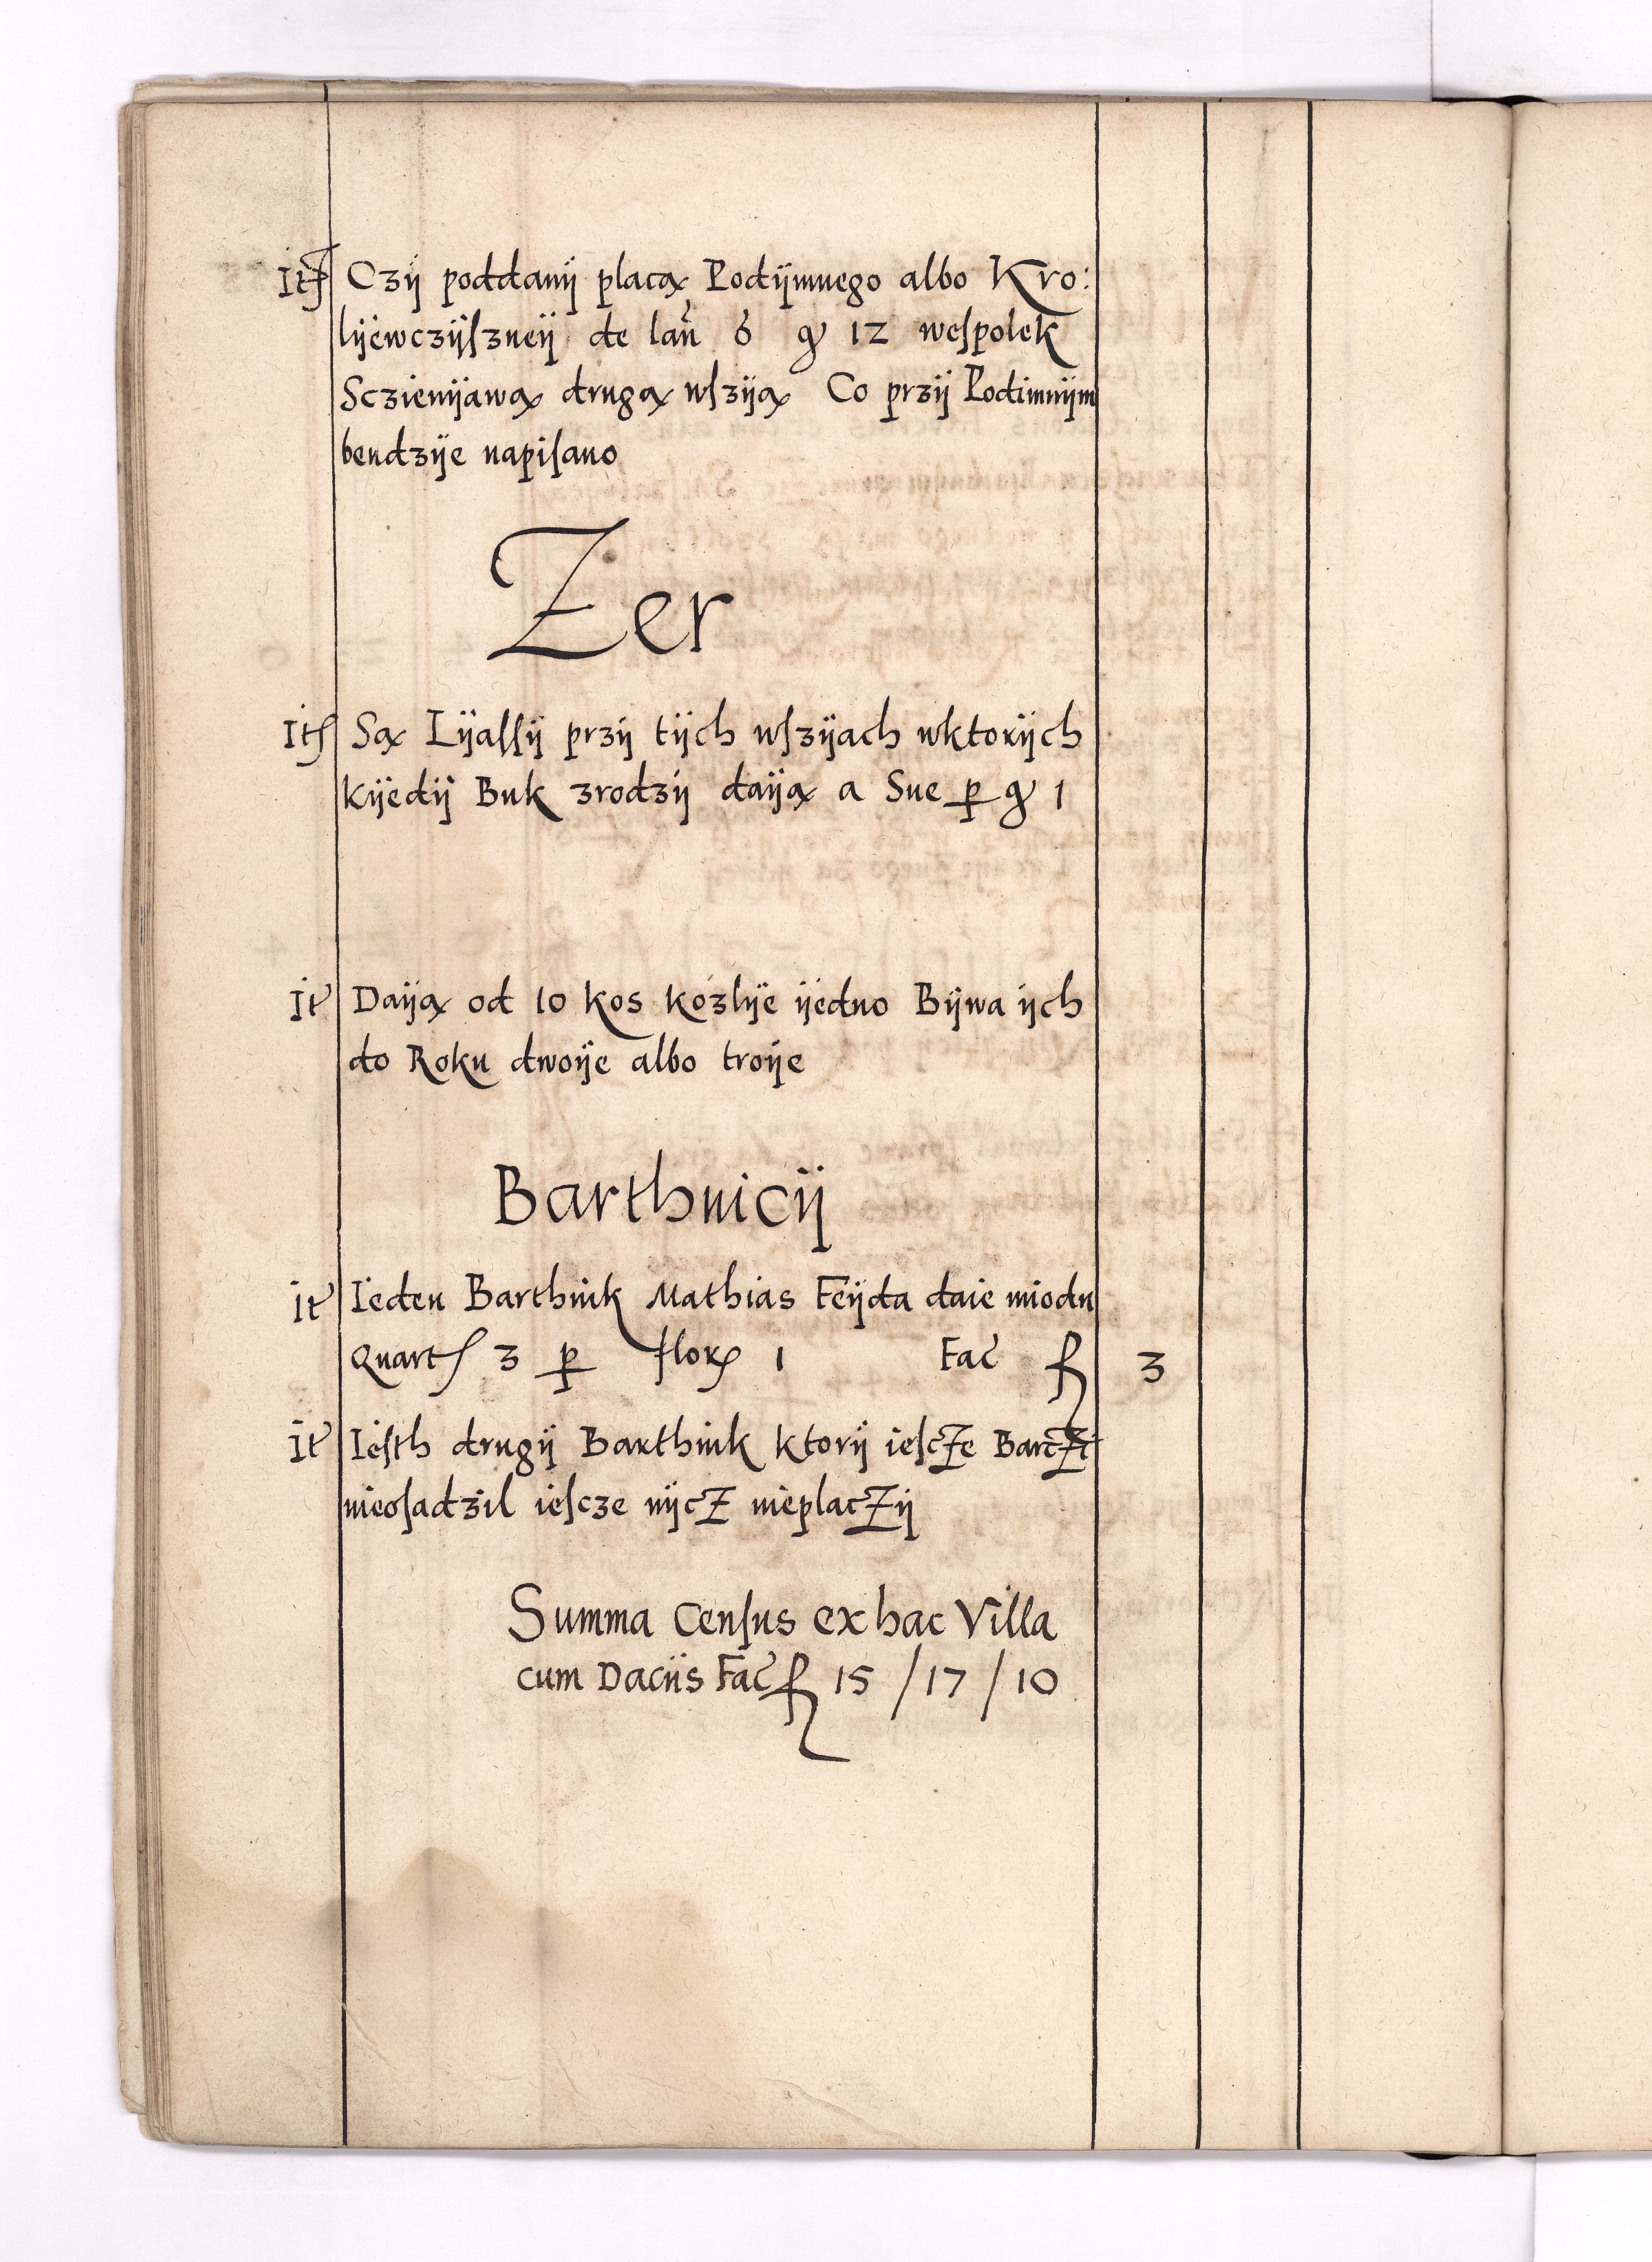 Itꝭ Czÿ poddanÿ placą Podÿmnego albo Kro:
lÿewczÿſzneÿ de lan̄ 6 gͬ 12 weſpolek
Sczienÿawą drugą wſzÿą Co przÿ Podimnÿm
bendzÿe napiſano
Zer
Itꝭ Są Lÿaſſÿ przÿ tÿch wſzÿach wktorÿch
kÿedÿ Buk zrodzÿ daÿą a Sue ꝑ gͬ 1
It Daÿą od 10 kos kozlÿe ÿedno Bÿwa ÿch
do Roku dwoÿe albo troÿe
Barthnicÿ
It Ieden Barthnik Mathias Feÿda daie miodu
Quartꝭ 3 ꝑ flor 1 Fac fl 3
It Ieſth drugÿ Barthnik ktorÿ ieſcze Barczi
nieoſadzil ieſcze nÿcz nieplaczÿ
Summa Cenſus ex hac Villa
cum Daciis Fac fl 15 / 17 / 10